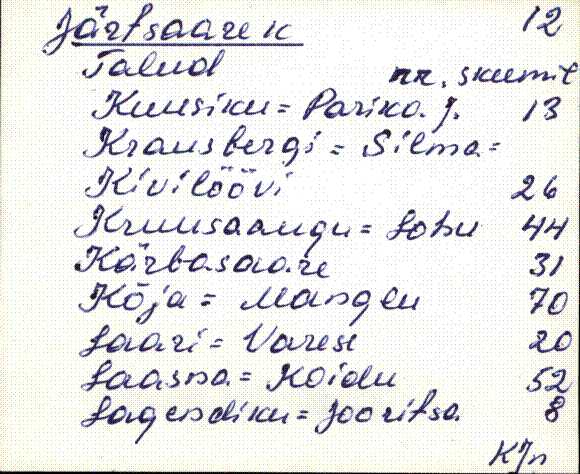 Järtsaare k 12
Talud nr. skeemil
Kuusiku = Pariko. J. 13
Kransbergi = Silma =
Kivilöövi 26
Kruusaangu = Lohu 44
Kärbasaare 31
Kõja = Mangeu 70
Laari = Varese 20
Laasna = Koidu 52
Lagendiku = Jooritsa 8
KJn